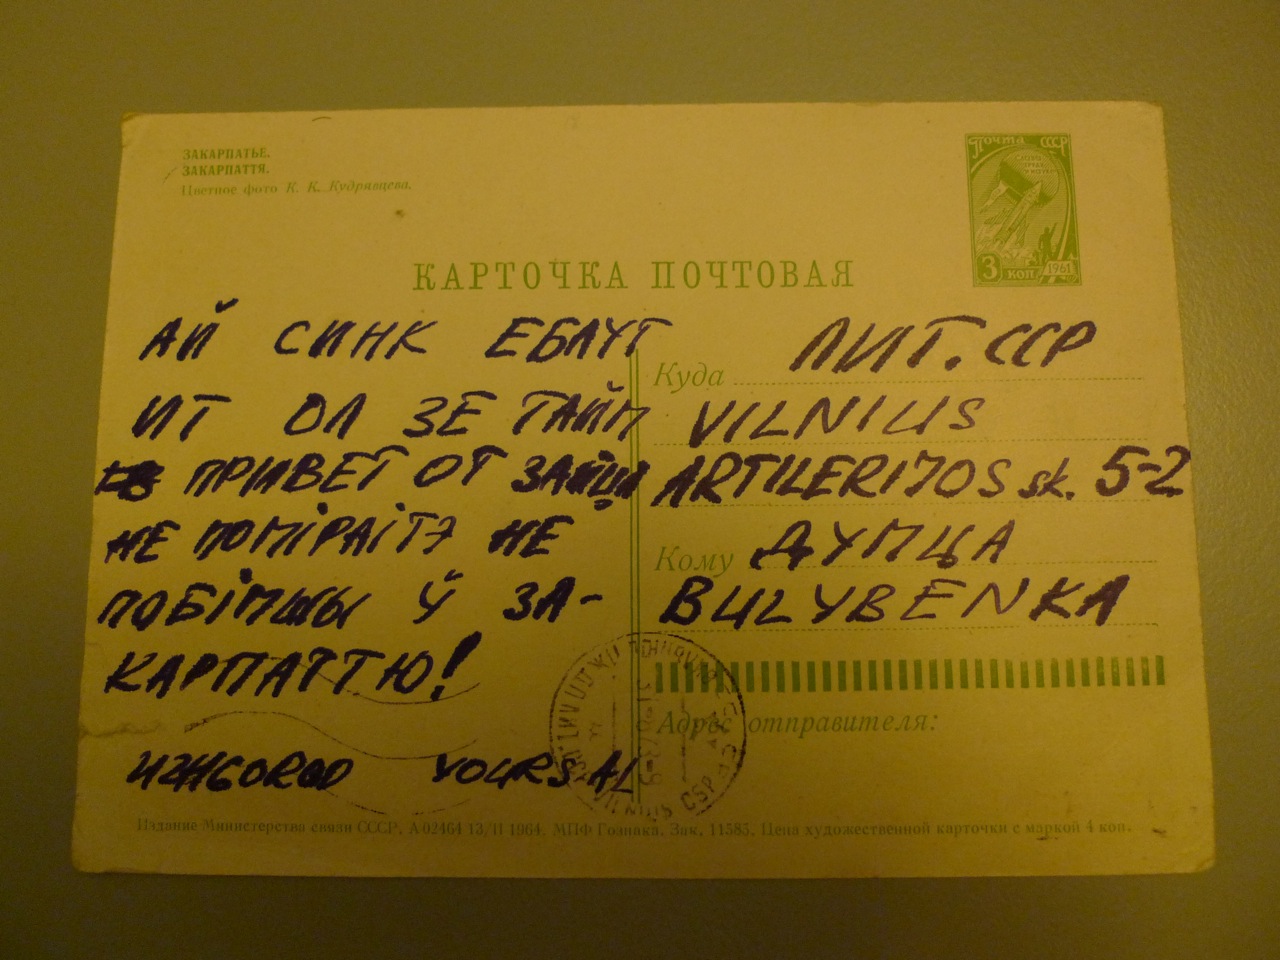 ЗАКАРПАТЬЕ.
ЗАКАРПАТТЯ.
Цветное фото К. К. Кудрявцева.
Почта СССР
3 коп 1961
КАРТОЧКА ПОЧТОВАЯ
АЙ СИНК ЕБАУТ
ИТ ОЛ ЗЕ ТАЙМ
ПРИВЕТ ОТ ЗАЙЦА
НЕ ПОМІРАІТЭ НЕ
ПОБІМШЫ Ў ЗА-
КАРПАТТЮ!
UZHGOROD YOURS AL
Куда ЛИТ. ССР
VILNIUS
ARTILERIJOS sk. 5-2
Кому ДУМЦА
BULYBENKA
Адрес отправителя:
VILNIUS CSP
Издание Министерства связи СССР. А 02464 13/II 1964. МПФ Гознака. Зак. 11585. Цена художественной карточки с маркой 4 коп.